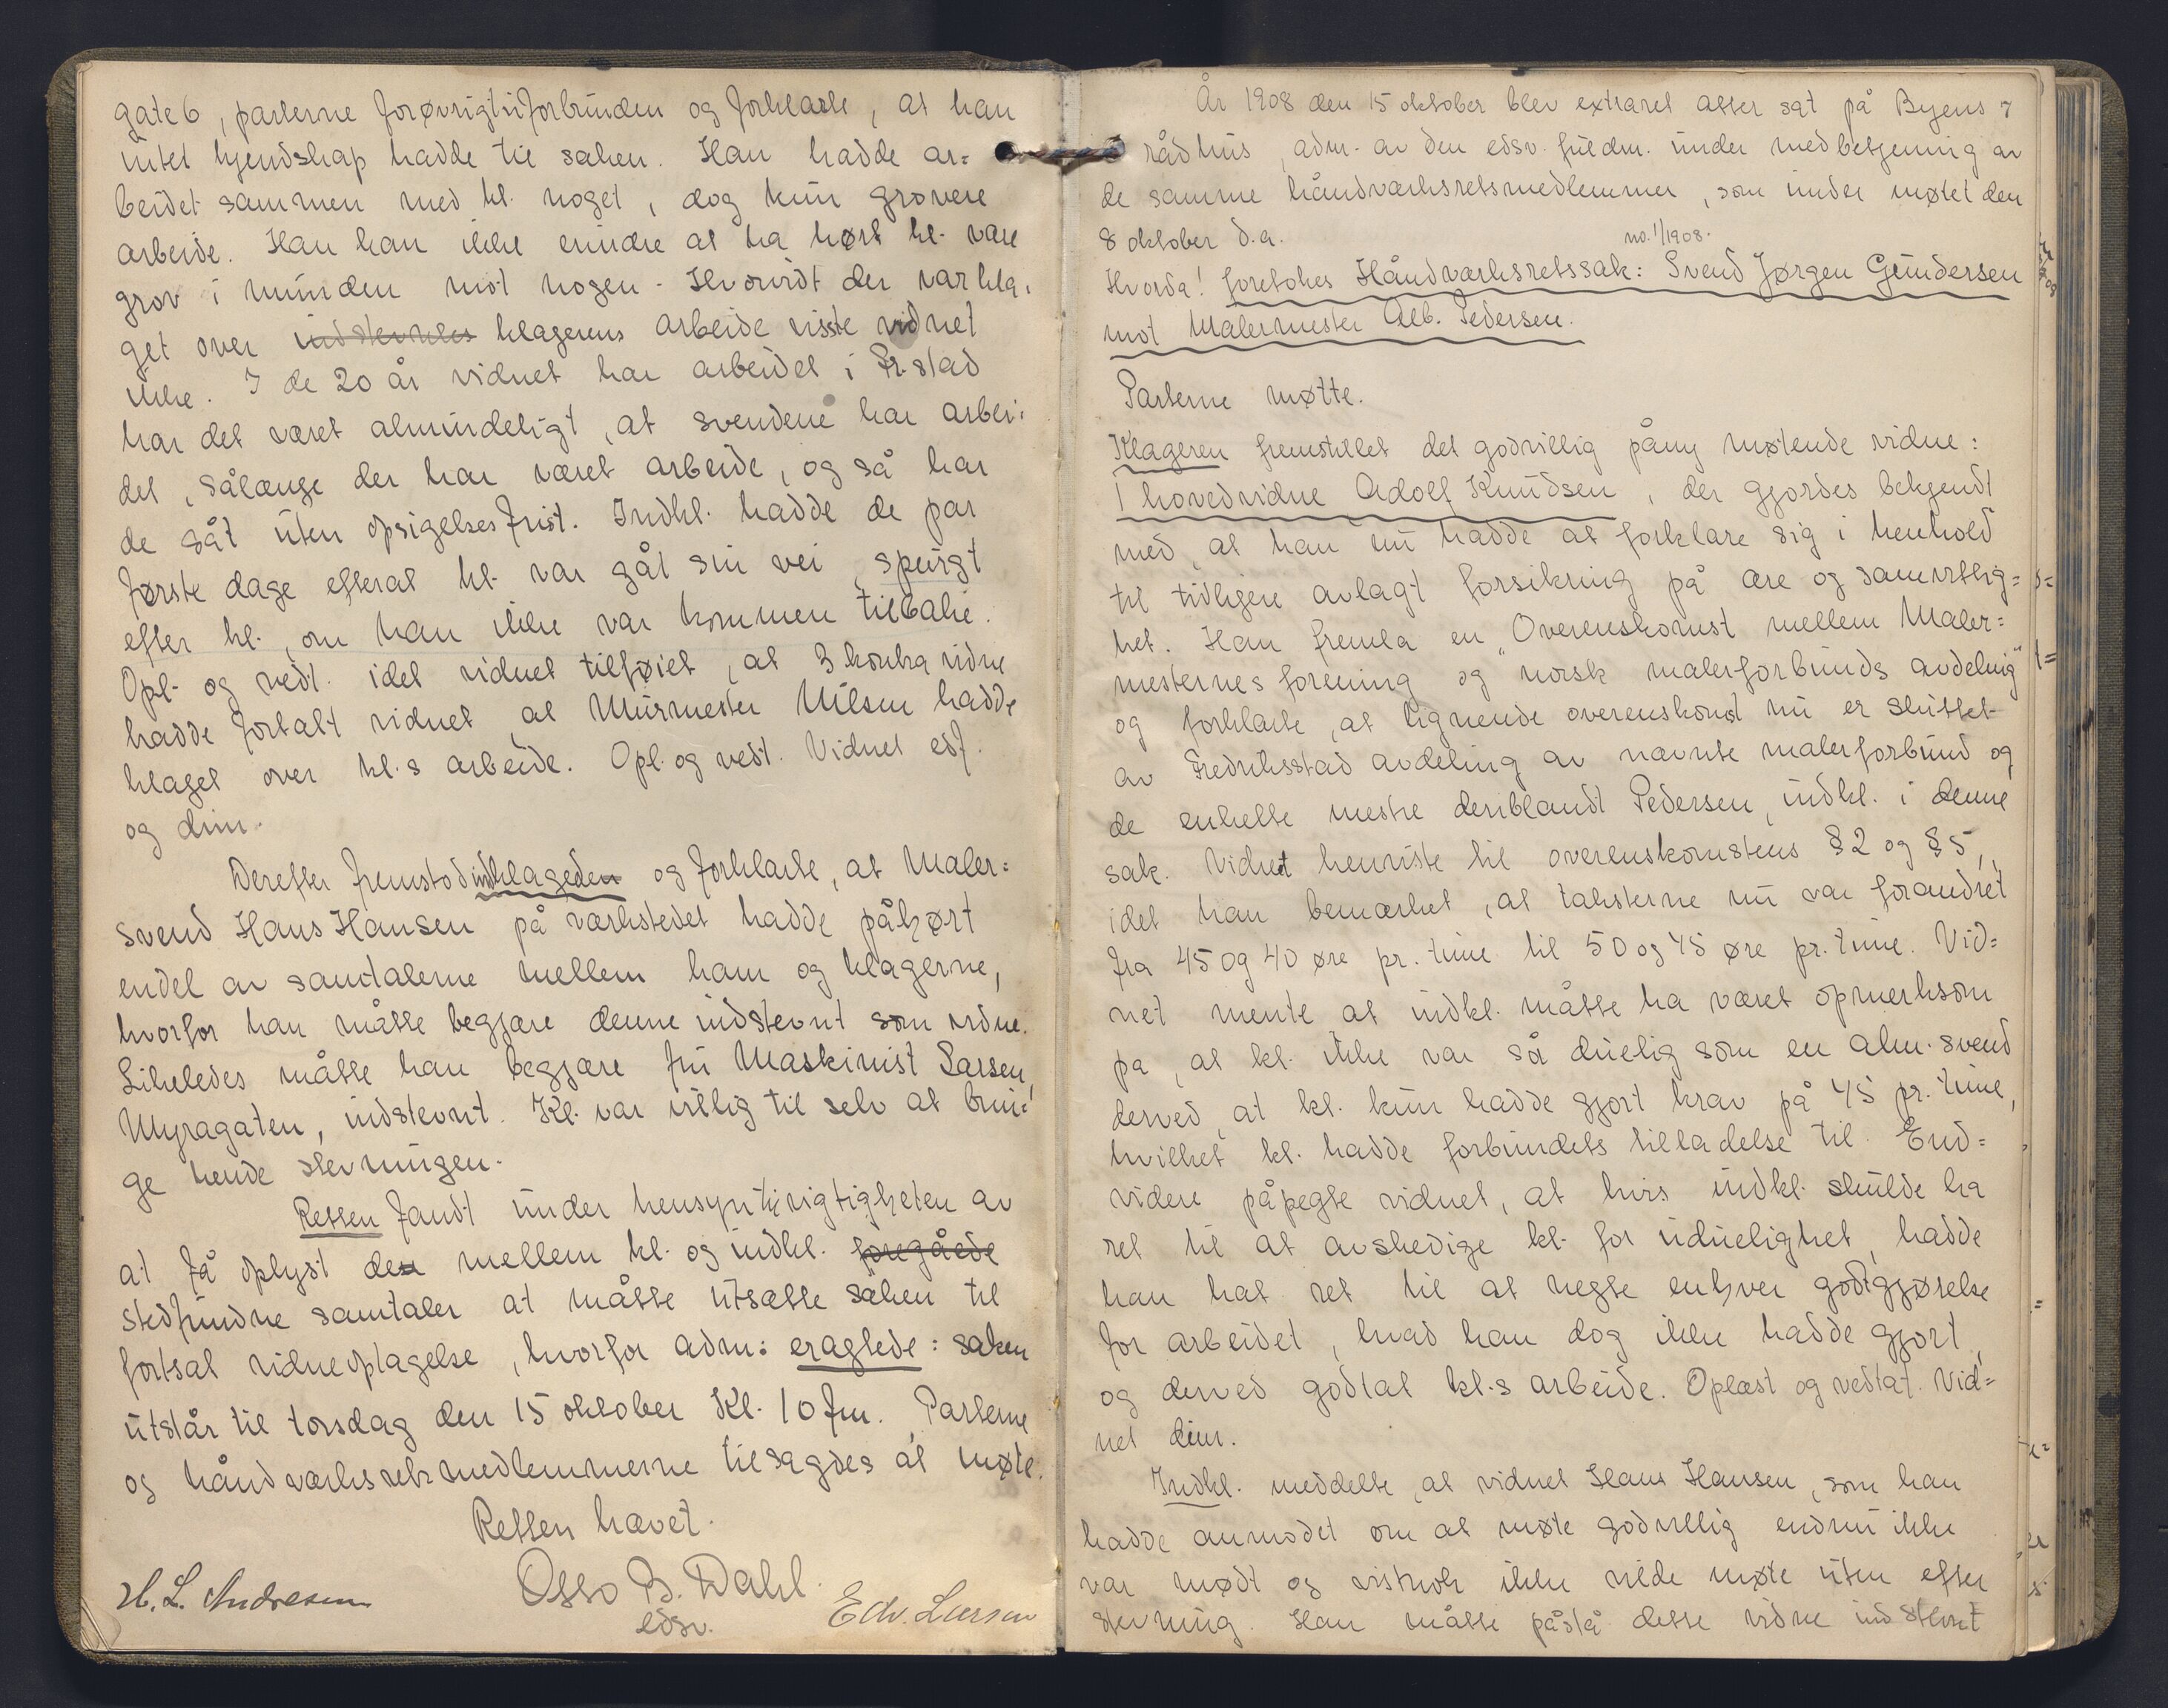 gate 6, parterne forøvrigt uforbunden og forklarte, at han
intet kjendskap hadde til saken. Han hadde ar=
beidet sammen med kl. noget, dog kun grovere
arbeide. Han kan ikke erindre at ha hørt kl. være
grov i munden mot nogen. Hvorvidt der var kla=
get over indstevntes klagerens arbeide visste vidnet
ikke. I de 20 år vidnet har arbeidet i Fr.stad
har det været almindeligt, at svendene har arbei=
det, sålænge der har været arbeide, og så har
de gåt uten opsigelsesfrist. Indkl. hadde de par
første dage efterat kl. var gåt sin vei, spurgt
efter kl., om han ikke var kommen tilbake.
Opl. og vedt. idet vidnet tilføiet, at 3 kontravidne
hadde fortalt vidnet, at Murmester Nilsen hadde
klaget over kl.s arbeide. Opl. og vedt. Vidnet edf.
og dim.
Derefter fremstod indklageden og forklarte, at Maler=
svend Hans Hansen på værkstedet hadde påhørt
endel av samtalerne mellem ham og klagerne,
hvorfor han måtte begjære denne indstevnt som vidne.
Likeledes måtte han begjære fru Maskinist Larsen,
Myragaten, indstevnt. Kl. var villig til selv at brin=
ge hende stevningen.
Retten fandt under hensyn til vigtigheten av
at få oplyst den mellem kl. og indkl. foregåede
stedfundne samtaler at måtte utsætte saken til
fortsat vidneoptagelse, hvorfor adm: eragtede: saken
utstår til torsdag den 15 oktober Kl. 10 fm. Parterne
og håndværksretsmedlemmerne tilsagdes at møte.
Retten hævet.
H. L. Andresen Otto B. Dahl. Edv. Larsen
edsv.
År 1908 den 15 oktober blev extraret atter sat på Byens
rådhus, adm. av den edsv. fuldm. under medbetjening av
de samme håndværksretsmedlemmer, som under møtet den
8 oktober d.a.
no. 1/1908.
Hvorda! foretokes Håndværksretssak: Svend Jørgen Gundersen
mot Malermester Alb. Pedersen.
Parterne møtte.
Klageren fremstillet det godvillig påny møtende vidne:
1 hovedvidne Adolf Knudsen, der gjordes bekjendt
med, at han nu hadde at forklare sig i henhold
til tidligere avlagt forsikring på ære og samvittig=
het. Han fremla en "Overenskomst mellem Maler=
mesternes forening og norsk malerforbunds avdeling"
og forklarte, at lignende overenskomst nu er sluttet
av Fredriksstad avdeling av nævnte malerforbund og
de enkelte mestre deriblandt Pedersen, indkl. i denne
sak. Vidnet henviste til overenskomstens § 2 og § 5,
idet han bemærket, at taksterne nu var forandret
fra 45 og 40 øre pr. time til 50 og 45 øre pr. time. Vid=
net mente at indkl. måtte ha været opmerksom
pa, at kl. ikke var så duelig som en alm. svend
derved, at kl. kun hadde gjort krav på 45 pr. time,
hvilket kl. hadde forbundets tilladelse til. End=
videre påpegte vidnet, at hvis indkl. skulde ha
ret til at avskedige kl. for uduelighet, hadde
han hat ret til at negte enhver godtgjørelse
for arbeidet, hvad han dog ikke hadde gjort,
og derved godtat kl.s arbeide. Oplæst og vedtat. Vid=
net dim.
Indkl. meddelte, at vidnet Hans Hansen, som han
hadde anmodet om at møte godvillig endnu ikke
var mødt og vistnok ikke vilde møte uten efter
stevning. Han måtte påstå dette vidne indstevnt